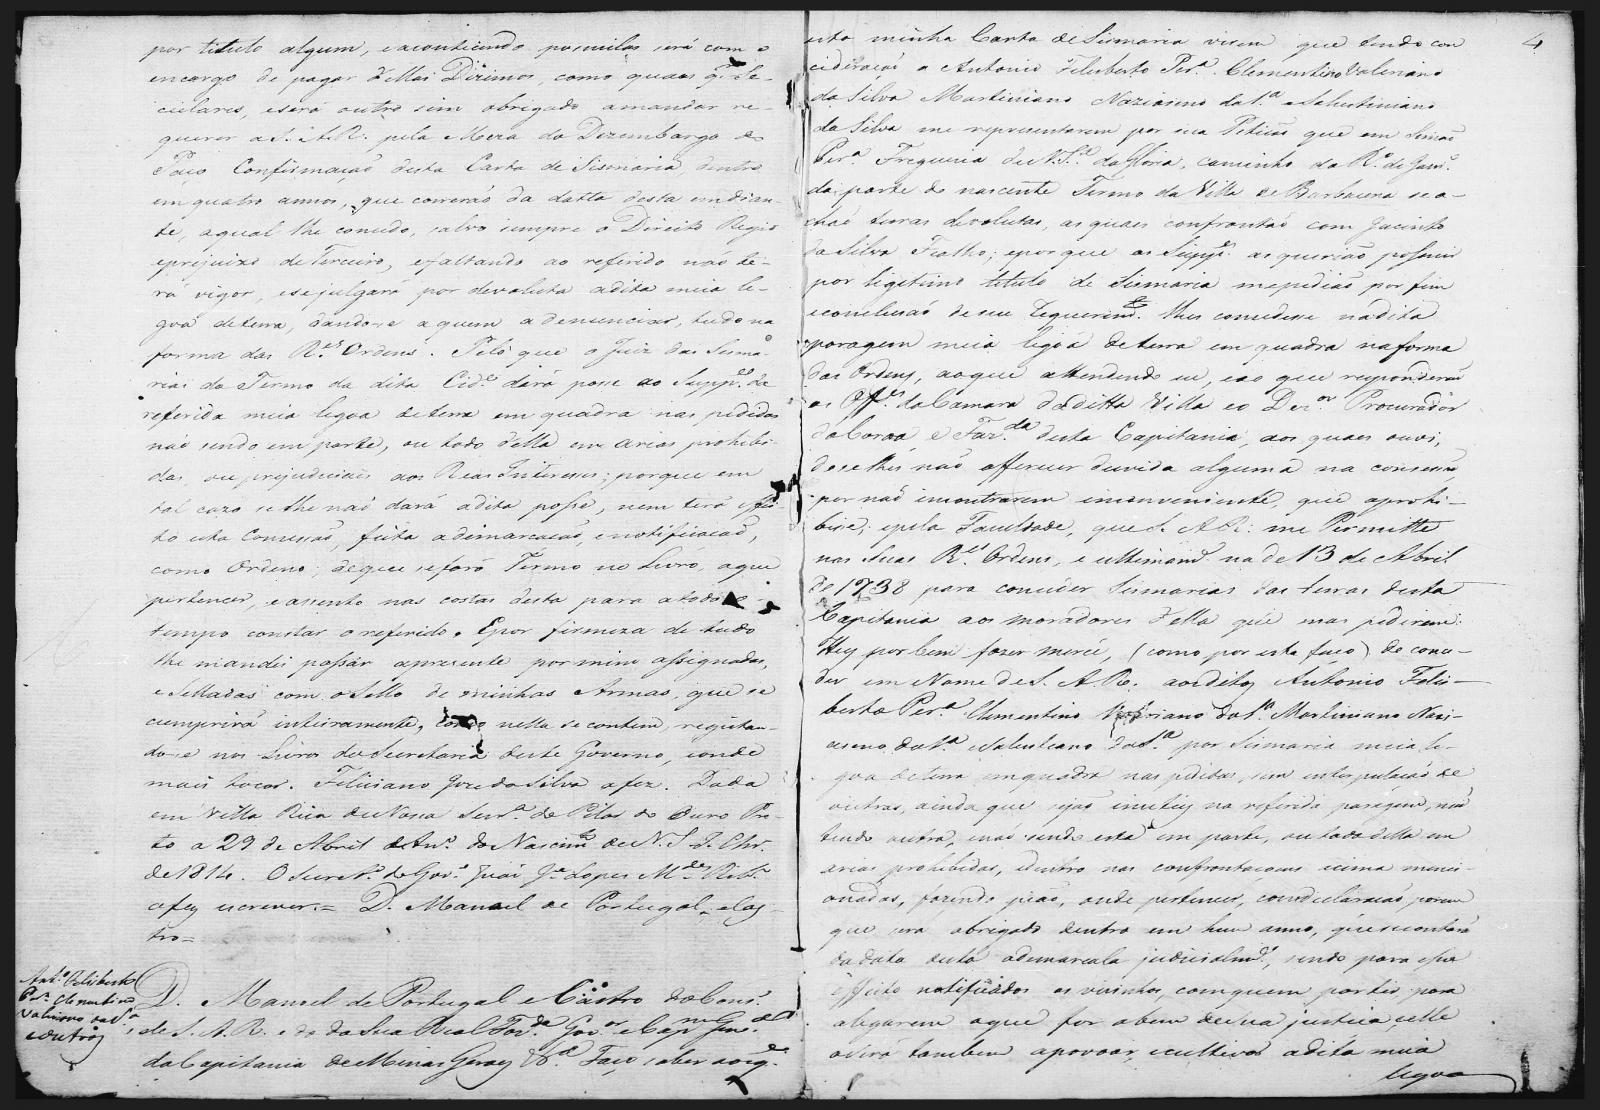 por titulo algum, e acontecendo possuilas será com o
encargo de pagar dellas Dizimos, como quaes qr. Se-
culares, e será outro sim obrigado a mandar re-
querer a S. A. R. pela Meza do Dezembargo do
Paço Confirmação desta Carta de Sismaria dentro
em quatro annos, que correráõ da datta desta em dian-
te, a qual lhe concedo, salvo sempre o Direito Regio
e prejuizo de Terceiro, e faltando ao referido não te-
rá vigor, e se julgará por devoluta a dita meia le-
goa de terra, dando-se a quem a denunciar, tudo na
forma das R.es Ordens. Pelo que o Juiz das Sesma
rias do Termo da dita Cid.e dará posse ao Supp.e da
referida meia legoa de terra em quadra nas pedidas
não sendo em parte, ou todo d'ella em arias prohibi-
das, ou prejudiciaes aos Reas Interesses; porque em
tal cazo se lhe naõ dará a dita posse, nem terá effei-
to esta Concessaõ, feita a demarcacaõ, e notificacaõ,
como Ordeno; de que se fará Termo no Livro, a que
pertencer, e assento nas costas desta para a todo o
tempo constar o referido. E por firmeza de tudo
lhe mandei passar a presente por mim assignada,
e Sellada com o Sello de minhas Armas, que se
cumprirá inteiramente, como nella se contem, registan-
do-se nos Livros da Secretaria deste Governo, e onde
mais tocar. Feliciano Joze da Silva a fez. Dada
em Villa Rica de Nossa Senr.a do Pilar do Ouro Pre-
to a 29 de Abril do An.o do Nascim.to de N. S. J. Chr.
de 1814. O Secret.o do Gov.o Joaõ J.e Lopes M.des Rib.o
a fez escrever. = D. Manoel de Portugal, e Cas-
tro =
Ant.o Felisberto
Per.a Clementino
Valeriano da S.a
e outros
D. Manoel de Portugal e Castro do Cons.o
de S. A. R. e do da Sua Real Faz.da Gov.or e Cap.m Gen.al
da Capitania de Minas Geraes &.a Faço saber aos q.
4
esta minha Carta de Sismaria virem que tendo con
cideraçaõ a Antonio Felisberto Per.a Clementino Valeriano
da Silva Martiniano Nazianeno da S.a e Salustiniano
da Silva me reprezentarem por sua Petiçaõ que em Simaõ
Per.a Freguezia de N. S.a da Gloria, caminho do R.o de Jan.o
da parte do nascente Termo da Villa de Barbacena se a-
chaõ terras devolutas, as quaes confrontaõ com Jacinto
da Silva Fialho; e porque os Supp.es as queriaõ possuir
por legitimo titulo de Sismaria me pediaõ por fim
e concluzaõ de seu Requerim.to lhes concedesse na dita
paragem meia legoa de terra em quadra na forma
das Ordens, ao que attendendo eu, e ao que responderaõ
os Off.es da Camara da ditta Villa e o Dez.or Procurador
da Coroa, e Faz.da desta Capitania, aos quaes ouvi,
de se lhes naõ offerecer duvida alguma na concessaõ
por naõ encontrarem inconveniente, que a prohi-
bisse; e pela Faculdade, que S. A. R. me Permitte
nas Suas R.es Ordens, e ultimam.te na de 13 de Abril
de 1738 para conceder Sismarias das terras desta
Capitania aos moradores d'ella que mas pedirem:
Hey por bem fazer mercê, (como por esta faço) de conce-
der em Nome de S. A. R. aos ditos Antonio Felis-
berto Per.a Clementino Valeriano da S.a Martiniano Nazi-
aseno da S.a e Salusteano da S.a por Sismaria meia le-
goa de terra em quadra nas pedidas, sem interpolaçaõ de
outras, ainda que sejaõ inuteis na referida paragem, naõ
tendo outra, e naõ sendo esta em parte, ou todo d'ella em
arias prohibidas, e dentro nas confrontaçoens acima menci-
onadas, fazendo piaõ, onde pertencer, com declaraçaõ porem
que será obrigado dentro em hum anno, que se contará
da data desta a demarcala judicialm.te, sendo para esse
effeito notificados os vizinhos, com quem partir, para
alegarem o que for a bem de sua justiça, e elle
o será tambem a povoar, e cultivar a dita meia
legoa